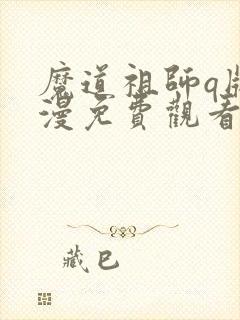 魔道祖師q版
漫免費觀看
藏巴